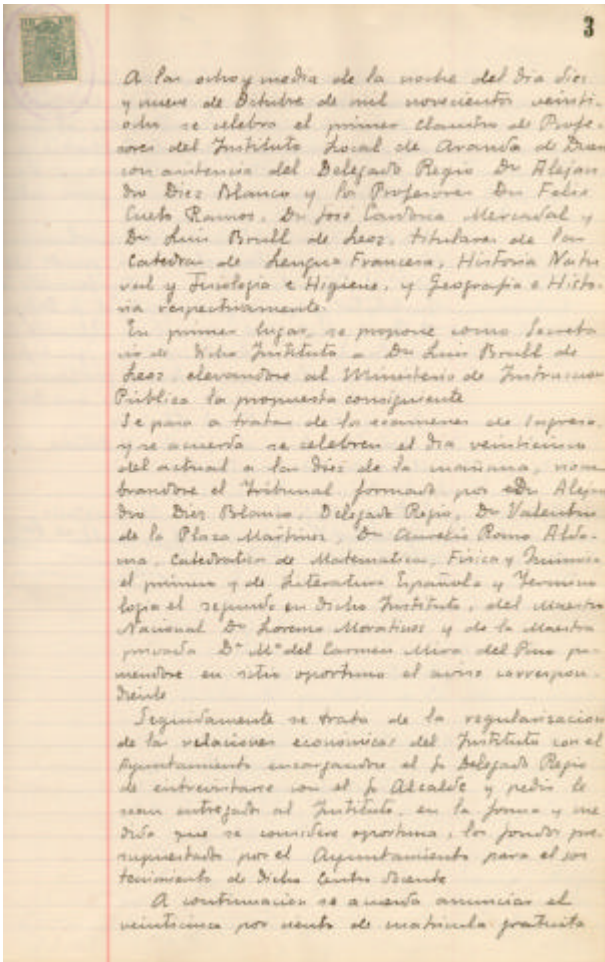 3
A las ocho y media de la noche del dia diez
y nueve de Octubre de mil novecientos veinti-
ocho se celebra el primer Claustro de Profe-
sores del Instituto Local de Aranda de Duero
con asistencia del Delegado Regio Dn Alejan
dro Diez Blanco y los Profesores Dn Felix
Cueto Ramos, Dn José Cardona Mercadal y
Dn Luis Brull de Leoz, titulares de las
Catedras de Lengua Francesa, Historia Natu
ral y Fisiologia e Higiene, y Geografia e Histo-
ria respectivamente.
En primer lugar, se propone como Secreta
rio de dicho Instituto a Dn Luis Brull de
Leoz, elevandose al Ministerio de Instruccion
Pública la propuesta consiguiente
Se pasa a tratar de los examenes de Ingreso,
y se acuerda se celebren el dia veinticinco
del actual a las diez de la mañana, nom
brandose el Tribunal formado por Dn Alejan
dro Diez Blanco, Delegado Regio, Dn Valentin
de la Plaza Martinez, Dn Aurelio Romo Alda-
ma, Catedraticos de Matematicas, Fisica y Quimica
el primero y de Literatura Española y Termino
logia el segundo en dicho Instituto, del Maestro
Nacional Dn Lorenzo Moratinos y de la Maestra
privada Dª Mª del Carmen Mira del Pino po-
niendose en sitio oportuno el aviso correspon-
diente
Seguidamente se trata de la regularizacion
de las relaciones economicas del Instituto con el
Ayuntamiento encargandose el Delegado Regio
de entrevistarse con el Alcalde y pedir le
sean entregados al Instituto, en la forma y me
dida que se considere oportuna, los fondos pre-
supuestados por el Ayuntamiento para el sos
tenimiento de dicho Centro docente
A continuacion se acuerda anunciar el
veinticinco por ciento de matricula gratuita